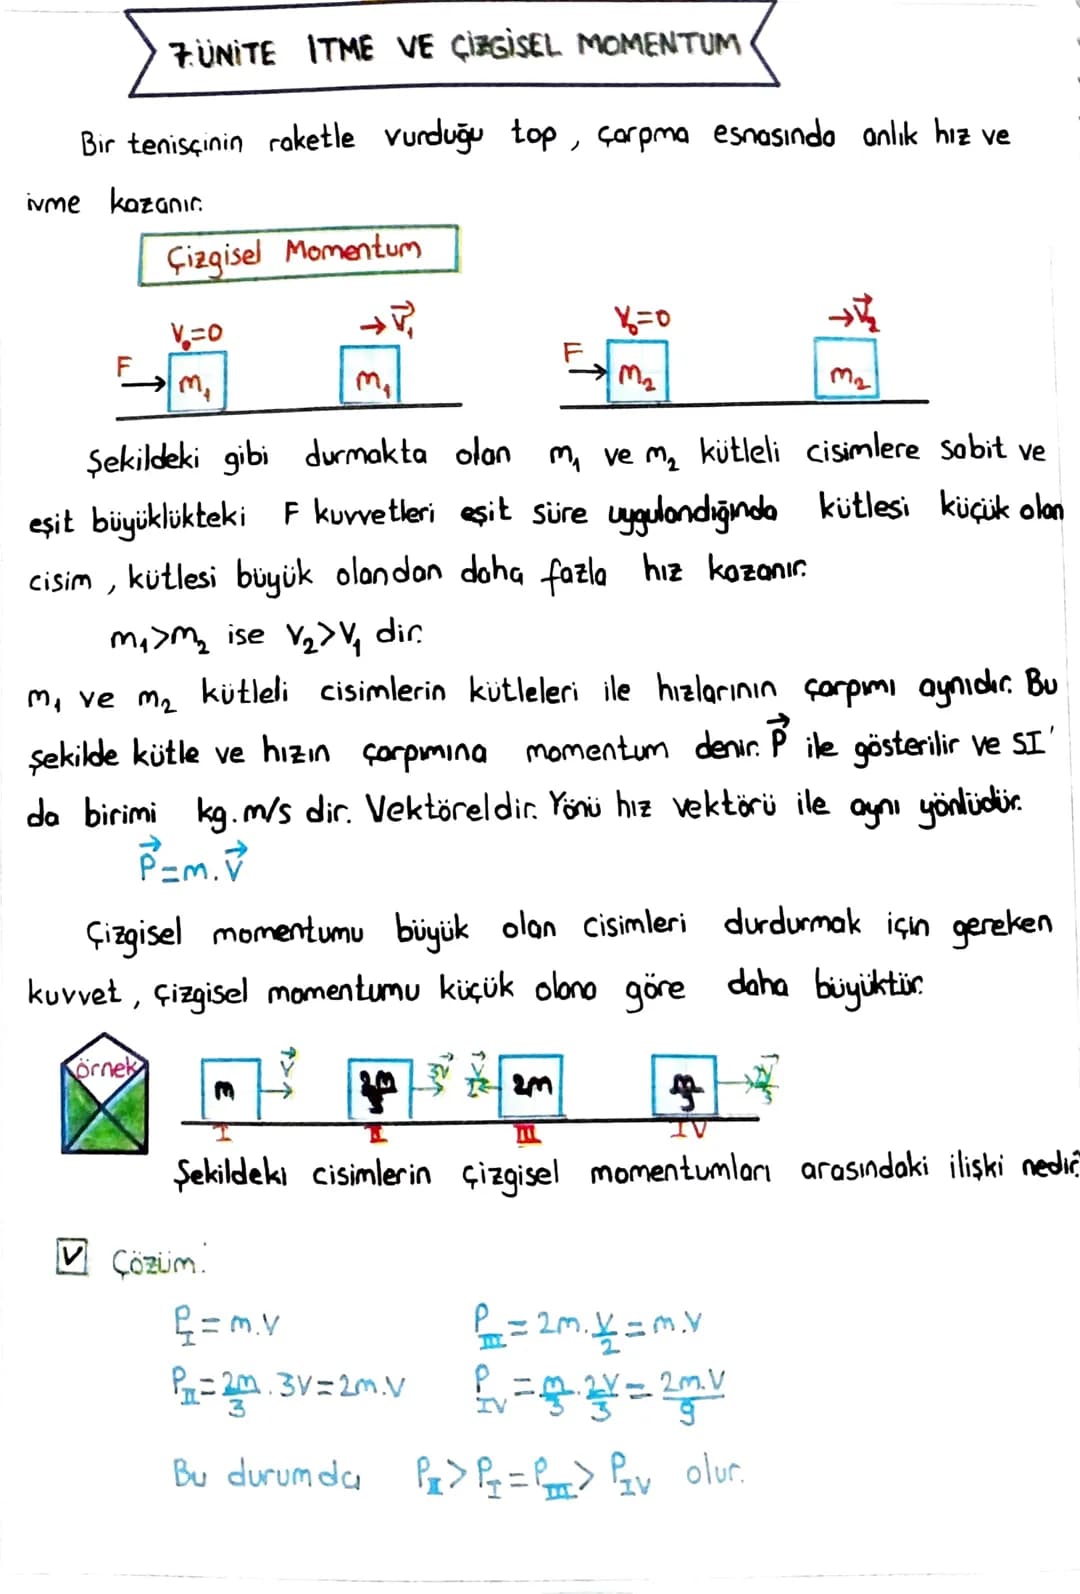 7.ÜNİTE İTME VE ÇİZGİSEL MOMENTUM
Bir tenisçinin raketle vurduğu top, çarpma esnasında anlık hız ve
ivme kazanır.
Çizgisel Momentum
V₀=0 →V⃗₁ V₀=0 →V⃗₂
F m₁ m₁ F m₂ m₂
Şekildeki gibi durmakta olan m₁ ve m₂ kütleli cisimlere sabit ve
eşit büyüklükteki F kuvvetleri eşit süre uygulandığında kütlesi küçük olan
cisim, kütlesi büyük olandan daha fazla hız kazanır.
m₁>m₂ ise V₂>V₁ dir.
m₁ ve m₂ kütleli cisimlerin kütleleri ile hızlarının çarpımı aynıdır. Bu
şekilde kütle ve hızın çarpımına momentum denir. P⃗ ile gösterilir ve SI'
da birimi kg.m/s dir. Vektöreldir. Yönü hız vektörü ile aynı yönlüdür.
P⃗=m.V⃗
Çizgisel momentumu büyük olan cisimleri durdurmak için gereken
kuvvet, çizgisel momentumu küçük olana göre daha büyüktür.
örnek m V⃗ 2m/3 3V⃗ V⃗/2 2m m/3 2V⃗/3
I II III IV
Şekildeki cisimlerin çizgisel momentumları arasındaki ilişki nedir?
V Çözüm:
P_I = m.V P_III = 2m.V/2 = m.V
P_II = 2m/3 . 3V = 2m.V P_IV = m/3 . 2V/3 = 2m.V/9
Bu durumda P_II > P_I = P_III > P_IV olur.